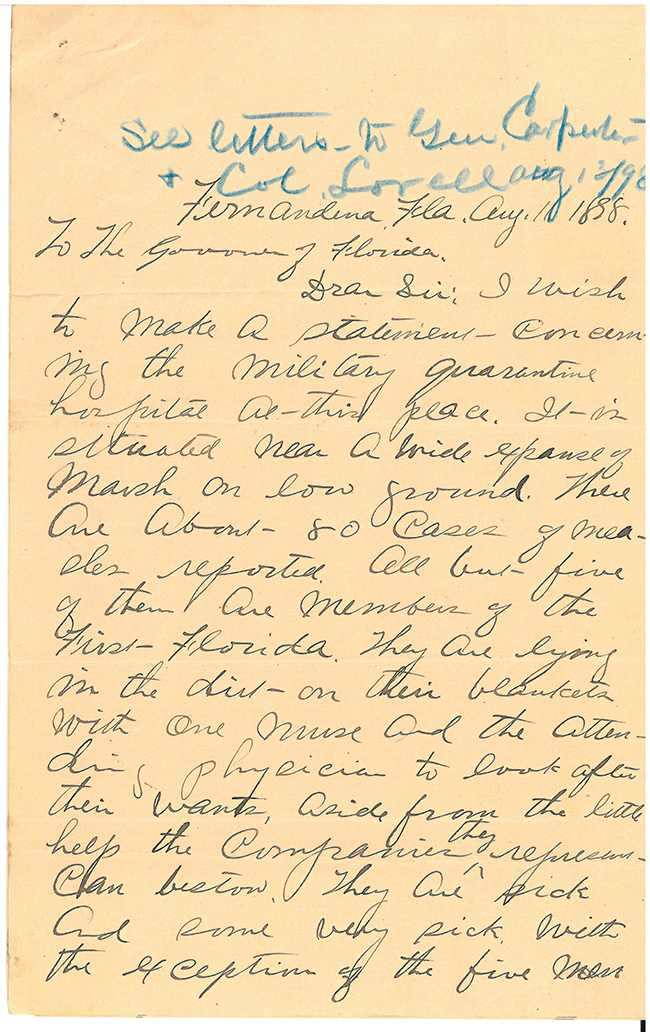 See letters - to Gen. Carpenter
+ Col. Lovell Aug 12/98
Fernandina, Fla. Aug. 1898.
To The Govoner of Florida.
Dear Sir; I wish
to make a statement concern-
ing the military quarantine
hospital at this place. It is
situated near a wide expanse of
Marsh on low ground. There
are about 80 cases of mea-
sles reported. All but five
of them are members of the
First Florida. They are lying
in the dirt on their blankets
with one nurse and the atten-
ding physician to look after
their wants, aside from the little
help the Companies they represent
can bestow. They are sick
and some very sick. With
the exception of the five men